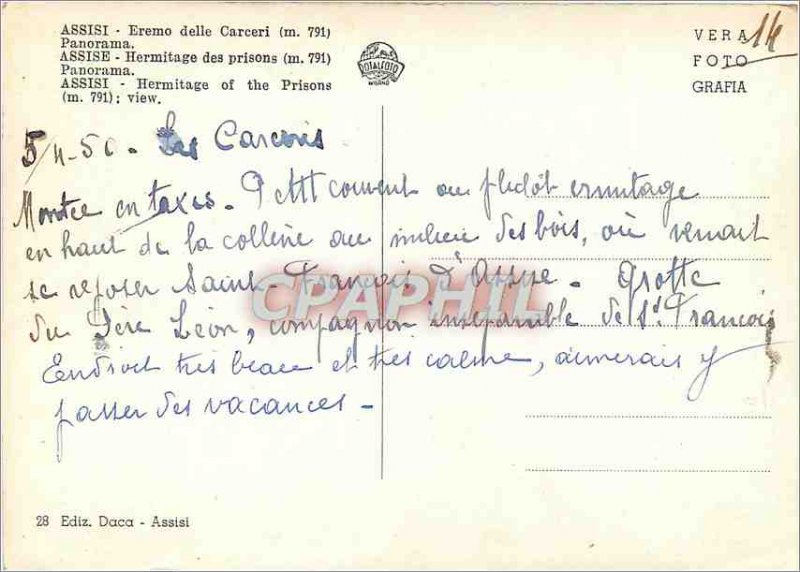 ASSISI - Eremo delle Carceri (m. 791)
Panorama.
ASSISE - Hermitage des prisons (m. 791)
Panorama.
ASSISI - Hermitage of the Prisons
(m. 791); view.
ROTALFOTO
MILANO
VERA
FOTO
GRAFIA
14
5/4-56. Les Carceris
Montée en taxis. Petit couvent ou plutôt ermitage
en haut de la colline au milieu des bois, où venait
se reposer Saint-François d'Assise. Grotte
du Père Léon, compagnon inséparable de St. François
Endroit très beau et très calme, aimerais y
passer des vacances -
CPAPHIL
28 Ediz. Daca - Assisi